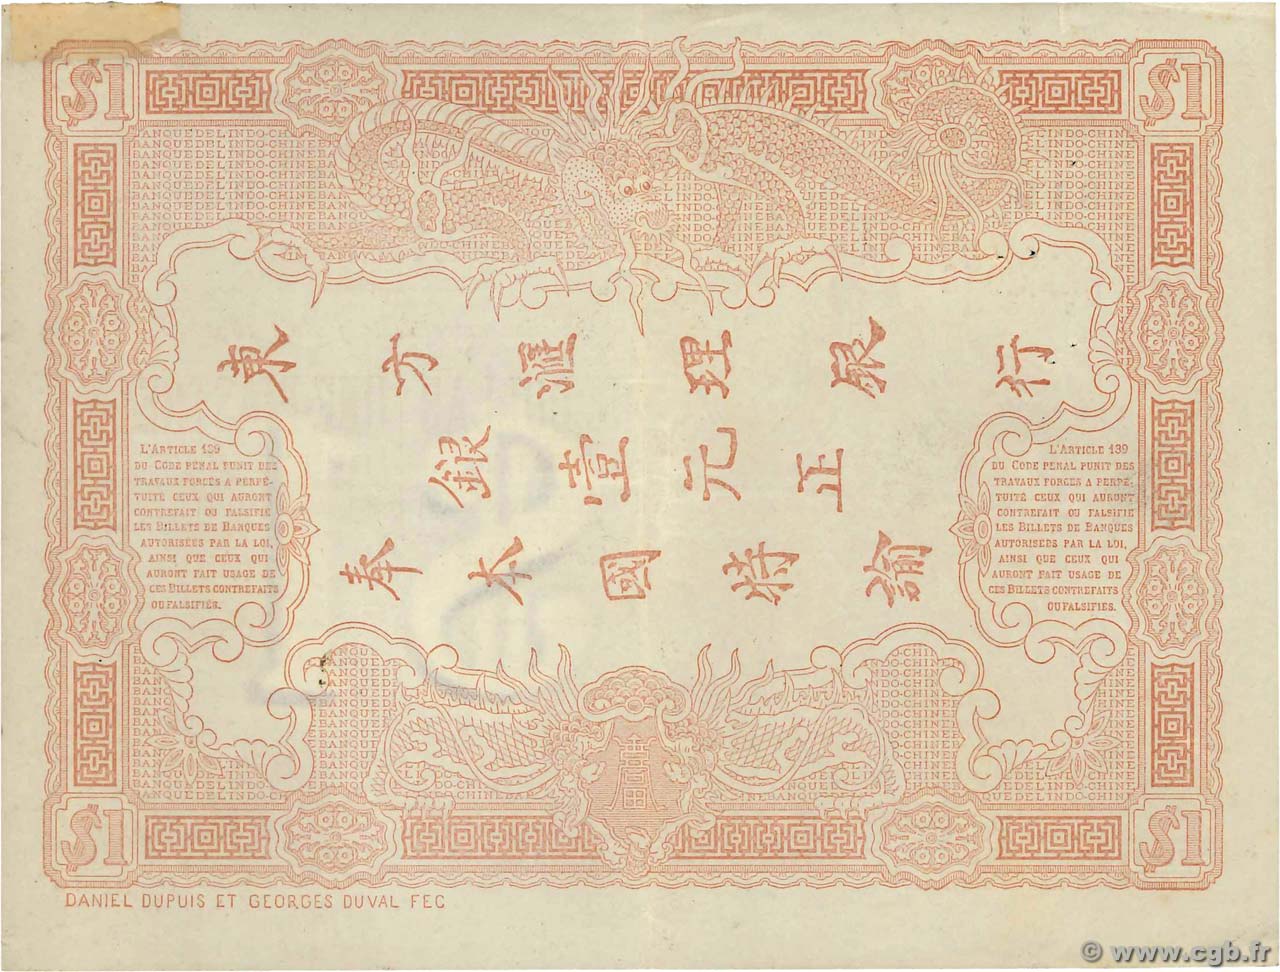 $1
$1
BANQUE DE L'INDO-CHINE
東方滙理銀行
銀壹元正
奉大國特諭
L'ARTICLE 139
DU CODE PENAL PUNIT DES
TRAVAUX FORCÉS A PERPÉ-
TUITÉ CEUX QUI AURONT
CONTREFAIT OU FALSIFIÉ
LES BILLETS DE BANQUES
AUTORISÉES PAR LA LOI,
AINSI QUE CEUX QUI
AURONT FAIT USAGE DE
CES BILLETS CONTREFAITS
OU FALSIFIÉS.
L'ARTICLE 139
DU CODE PENAL PUNIT DES
TRAVAUX FORCES A PERPE-
TUITÉ CEUX QUI AURONT
CONTREFAIT OU FALSIFIÉ
LES BILLETS DE BANQUES
AUTORISEES PAR LA LOI,
AINSI QUE CEUX QUI
AURONT FAIT USAGE DE
CES BILLETS CONTREFAITS
OU FALSIFIES.
$1
$1
DANIEL DUPUIS ET GEORGES DUVAL FEC
© www.cgb.fr